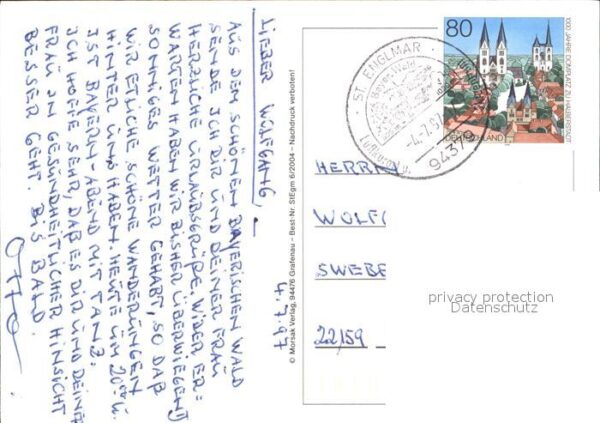 4.7.97
LIEBER WOLFGANG,
AUS DEM SCHÖNEN BAYERISCHEN WALD
SENDE ICH DIR UND DEINER FRAU
HERZLICHE URLAUBSGRÜßE. WIDER ER=
WARTEN HABEN WIR BISHER ÜBERWIEGEND
SONNIGES WETTER GEHABT, SO DAß
WIR ETLICHE SCHÖNE WANDERUNGEN
HINTER UNS HABEN. HEUTE UM 20ºº U.
IST BAYERN-ABEND MIT TANZ.
ICH HOFFE SEHR, DAß ES DIR UND DEINER
FRAU IN GESUNDHEITLICHER HINSICHT
BESSER GEHT. BIS BALD.
OTTO
© Morsak Verlag, 94476 Grafenau - Best-Nr. StEgm 6/2004 - Nachdruck verboten!
ST. ENGLMAR
Bayer. Wald
-4.7.97
94379
80
1000 JAHRE DOMPLATZ ZU HALBERSTADT
DEUTSCHLAND
HERRN
WOLF
SWEBE
22159
privacy protection
Datenschutz